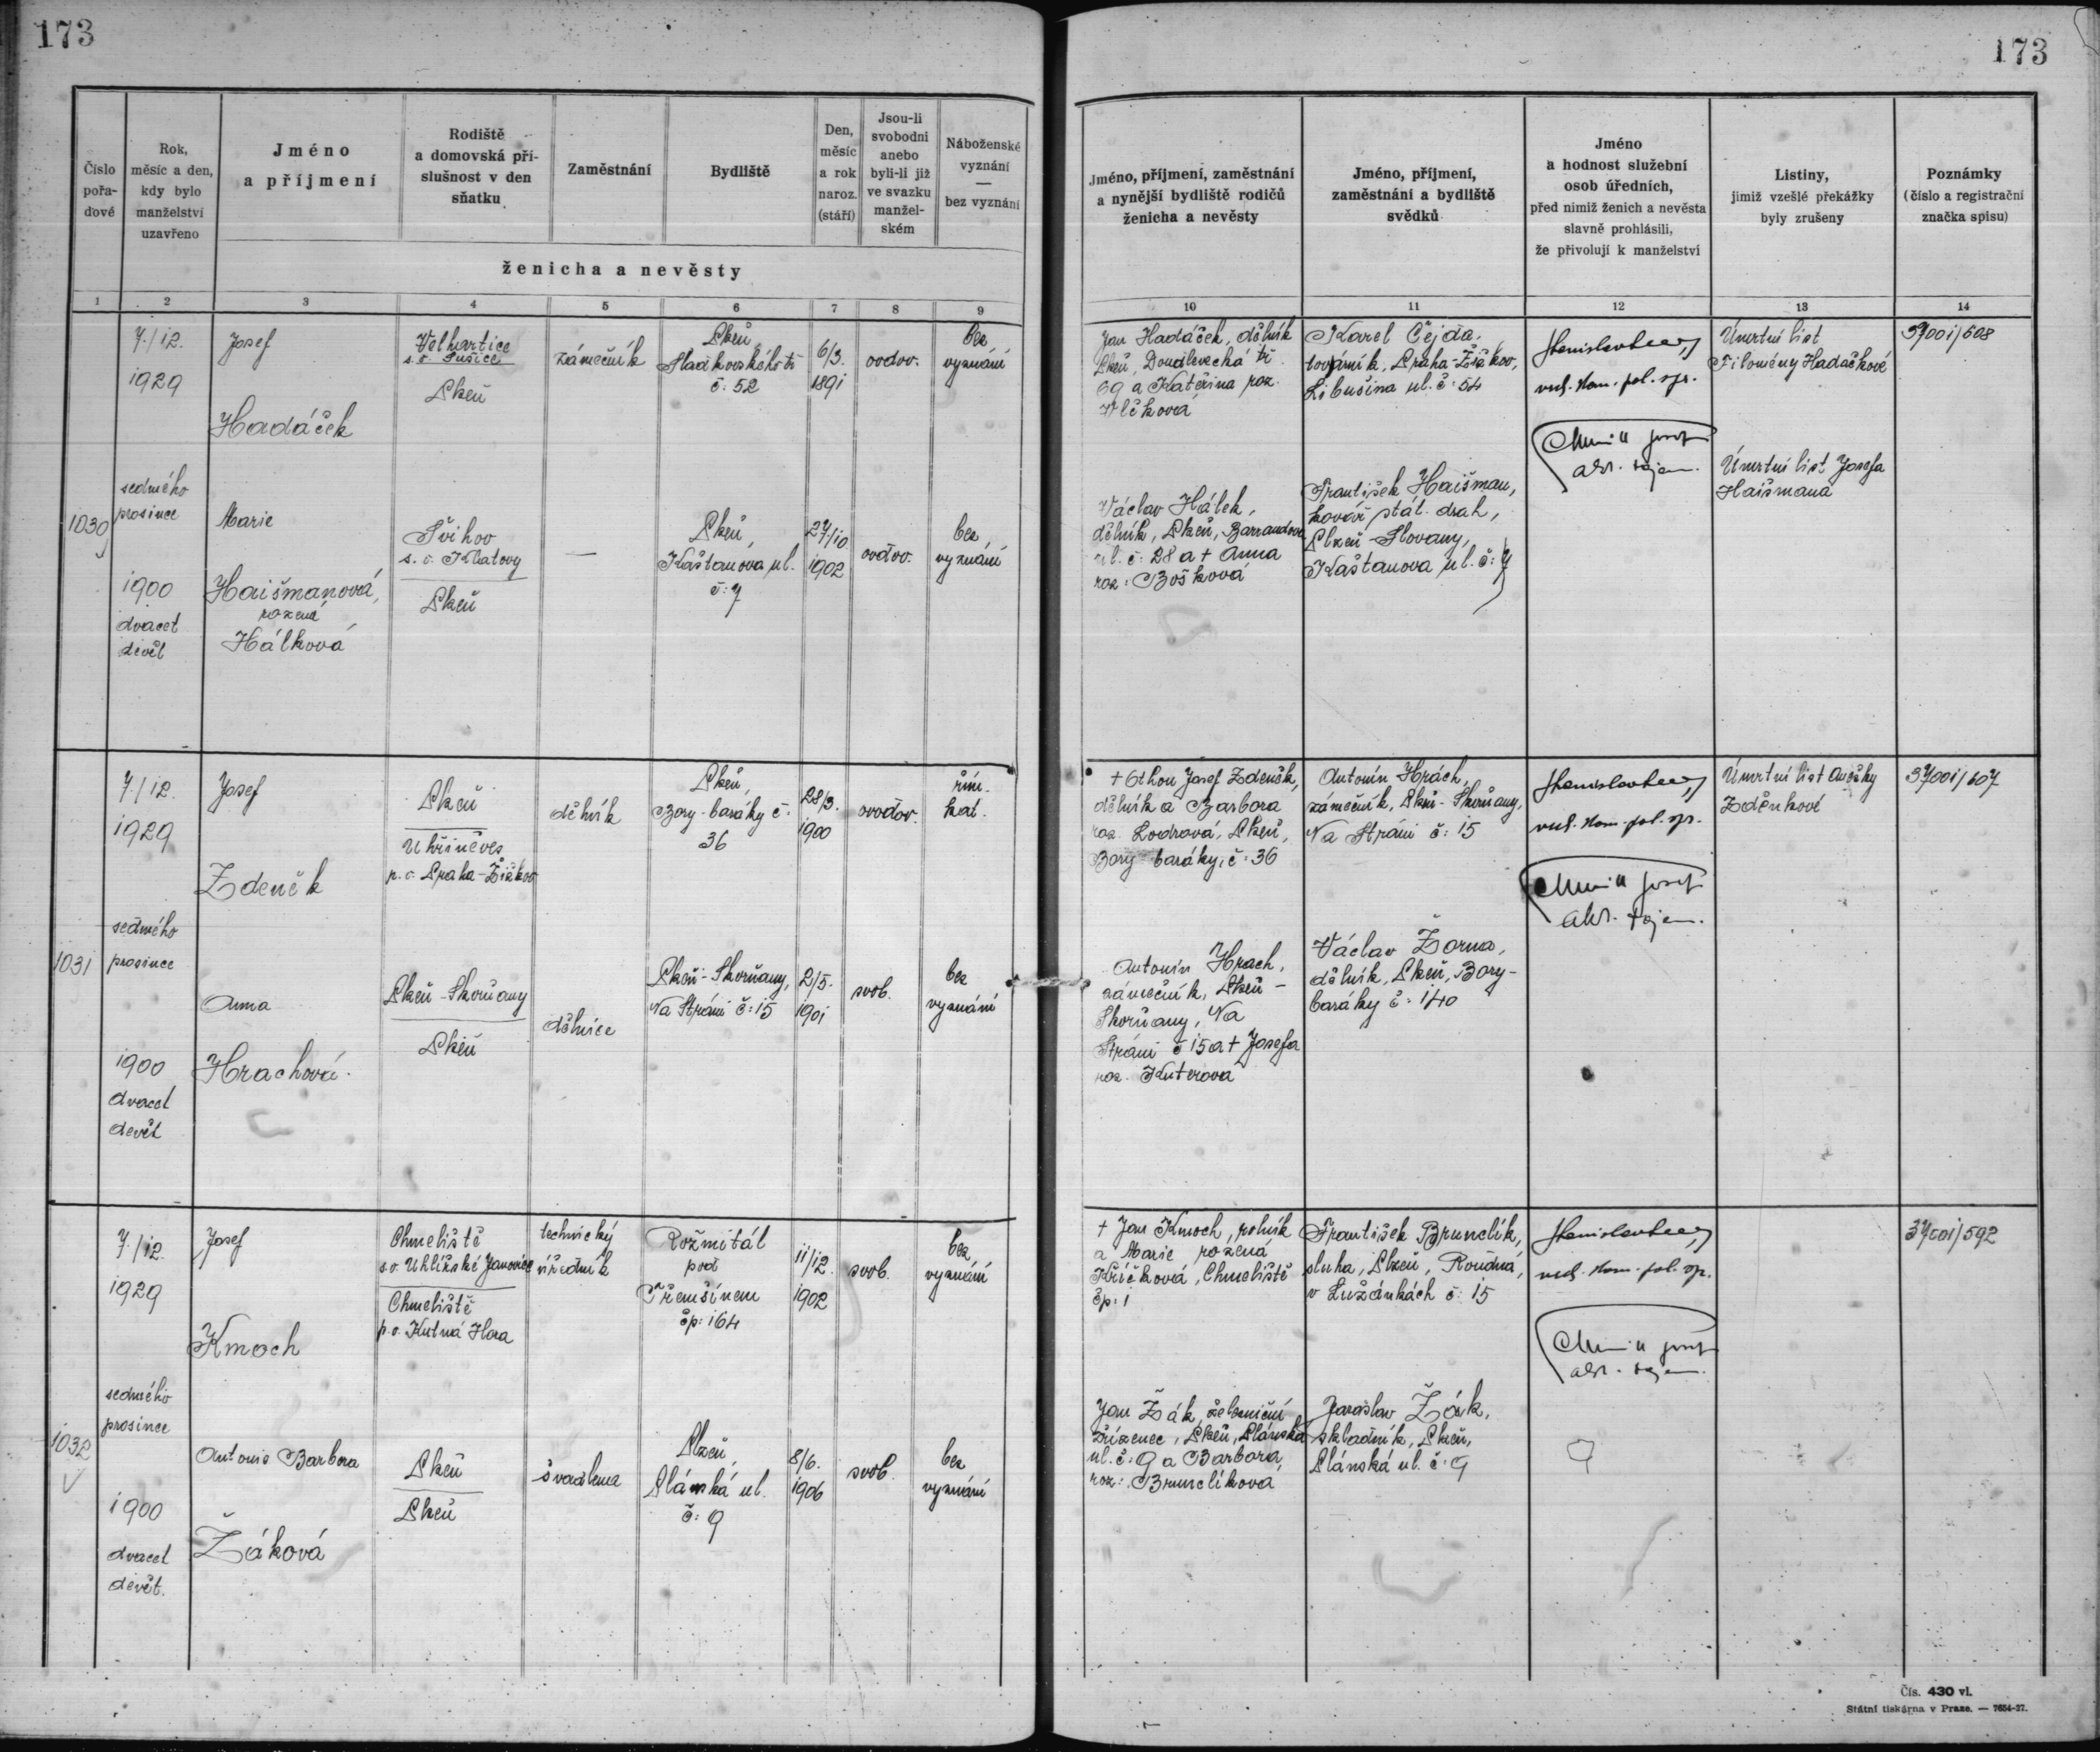 173
173
Číslo
pořa-
dové
Rok,
měsíc a den,
kdy bylo
manželství
uzavřeno
Jméno
a příjmení
Rodiště
a domovská pří-
slušnost v den
sňatku
Zaměstnání
Bydliště
Den,
měsíc
a rok
naroz.
(stáří)
Jsou-li
svobodni
anebo
byli-li již
ve svazku
manžel-
ském
Náboženské
vyznání
—
bez vyznání
ženicha a nevěsty
Jméno, příjmení, zaměstnání
a nynější bydliště rodičů
ženicha a nevěsty
Jméno, příjmení,
zaměstnání a bydliště
svědků
Jméno
a hodnost služební
osob úředních,
před nimiž ženich a nevěsta
slavně prohlásili,
že přivolují k manželství
Listiny,
jimiž vzešlé překážky
byly zrušeny
Poznámky
(číslo a registrační
značka spisu)
1 2 3 4 5 6 7 8 9 10 11 12 13 14
1030
7./12.
1929
sedmého
prosince
1900
dvacet
devět
Josef
Hadáček
Velhartice
s. o. Sušice
Plzeň
zámečník
Plzeň,
Hladkovského tř.
č: 52
6/3.
1891
ovdov.
bez
vyznání
Jan Hadáček, dělník
Plzeň, Doudlevecká tř.
69 a Kateřina roz.
Vlčková
Karel Čejda,
továrník, Praha-Žižkov,
Libušina ul. č: 54
vrch. kom. pol. spr.
Josef
akt. tajem.
Úmrtní list
Filomény Hadáčkové
37001/608
Marie
Haišmanová,
rozená
Hálková
Švihov
s. o. Klatovy
Plzeň
—
Plzeň,
Kaštanova ul.
č: 7
27/10
1902
ovdov.
bez
vyznání
Václav Hálek,
dělník, Plzeň, Barrandova
ul. č: 28 a + Anna
roz: Bošková
František Haišman,
kovář stát. drah,
Plzeň-Slovany,
Kaštanova ul. č: 7
Úmrtní list Josefa
Haišmana
1031
7./12.
1929
sedmého
prosince
1900
dvacet
devět
Josef
Zdeněk
Plzeň
Uhříněves
p. o. Praha-Žižkov
dělník
Plzeň,
Bory-baráky č:
36
28/3.
1900
ovdov.
řím.
kat.
Josef Zdeněk,
dělník a Barbora
roz. Lodrová, Plzeň,
Bory baráky, č: 36
Antonín Hrách,
zámečník, Plzeň-Skvrňany,
Na Stráni č: 15
vrch. kom. pol. spr.
Josef
akt. tajem.
Úmrtní list Anežky
Zděnkové
37001/607
Anna
Hrachová
Plzeň-Skvrňany
Plzeň
dělnice
Plzeň-Skvrňany,
Na Stráni č: 15
2/5.
1901
svob.
bez
vyznání
Antonín Hrach,
zámečník, Plzeň-
Skvrňany, Na
Stráni č 15 a + Josefa
roz. Kuterova
Václav Žorna,
dělník, Plzeň, Bory-
baráky č: 140
1032
7./12.
1929
sedmého
prosince
1900
dvacet
devět.
Josef
Kmoch
Chmeliště
s. o. Uhlířské Janovice
Chmeliště
p. o. Kutná Hora
technický
úředník
Rožmitál
pod
Třemšínem
čp: 164
11/12.
1902
svob.
bez
vyznání
+ Jan Kmoch, rolník
a Marie rozená
Křičková, Chmeliště
čp: 1
František Brunclík,
sluha, Plzeň, Roudná,
v Lužánkách č: 15
vrch. kom. pol. spr.
Josef
akt. tajem.
37001/592
Antonie Barbora
Žáková
Plzeň
Plzeň
švadlena
Plzeň,
Plánská ul.
č: 9
8/6.
1906
svob.
bez
vyznání
Jan Žák, železniční
zřízenec, Plzeň, Plánská
ul. č: 9 a Barbora,
roz: Brunclíková
Jaroslav Žák,
skladník, Plzeň,
Plánská ul. č: 9
Čís. 430 vl.
Státní tiskárna v Praze. — 7654-27.